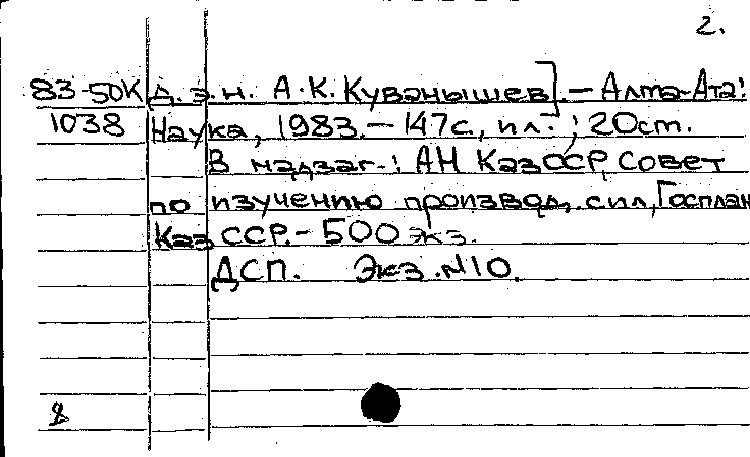 2.
83-50К д.э.н. А.К. Куванышев]. - Алма-Ата:
1038 Наука, 1983. - 147с., ил. ; 20см.
В надзаг.: АН КазССР, Совет
по изучению производ. сил, Госплан
КазССР. - 500 экз.
ДСП. Экз. №10.